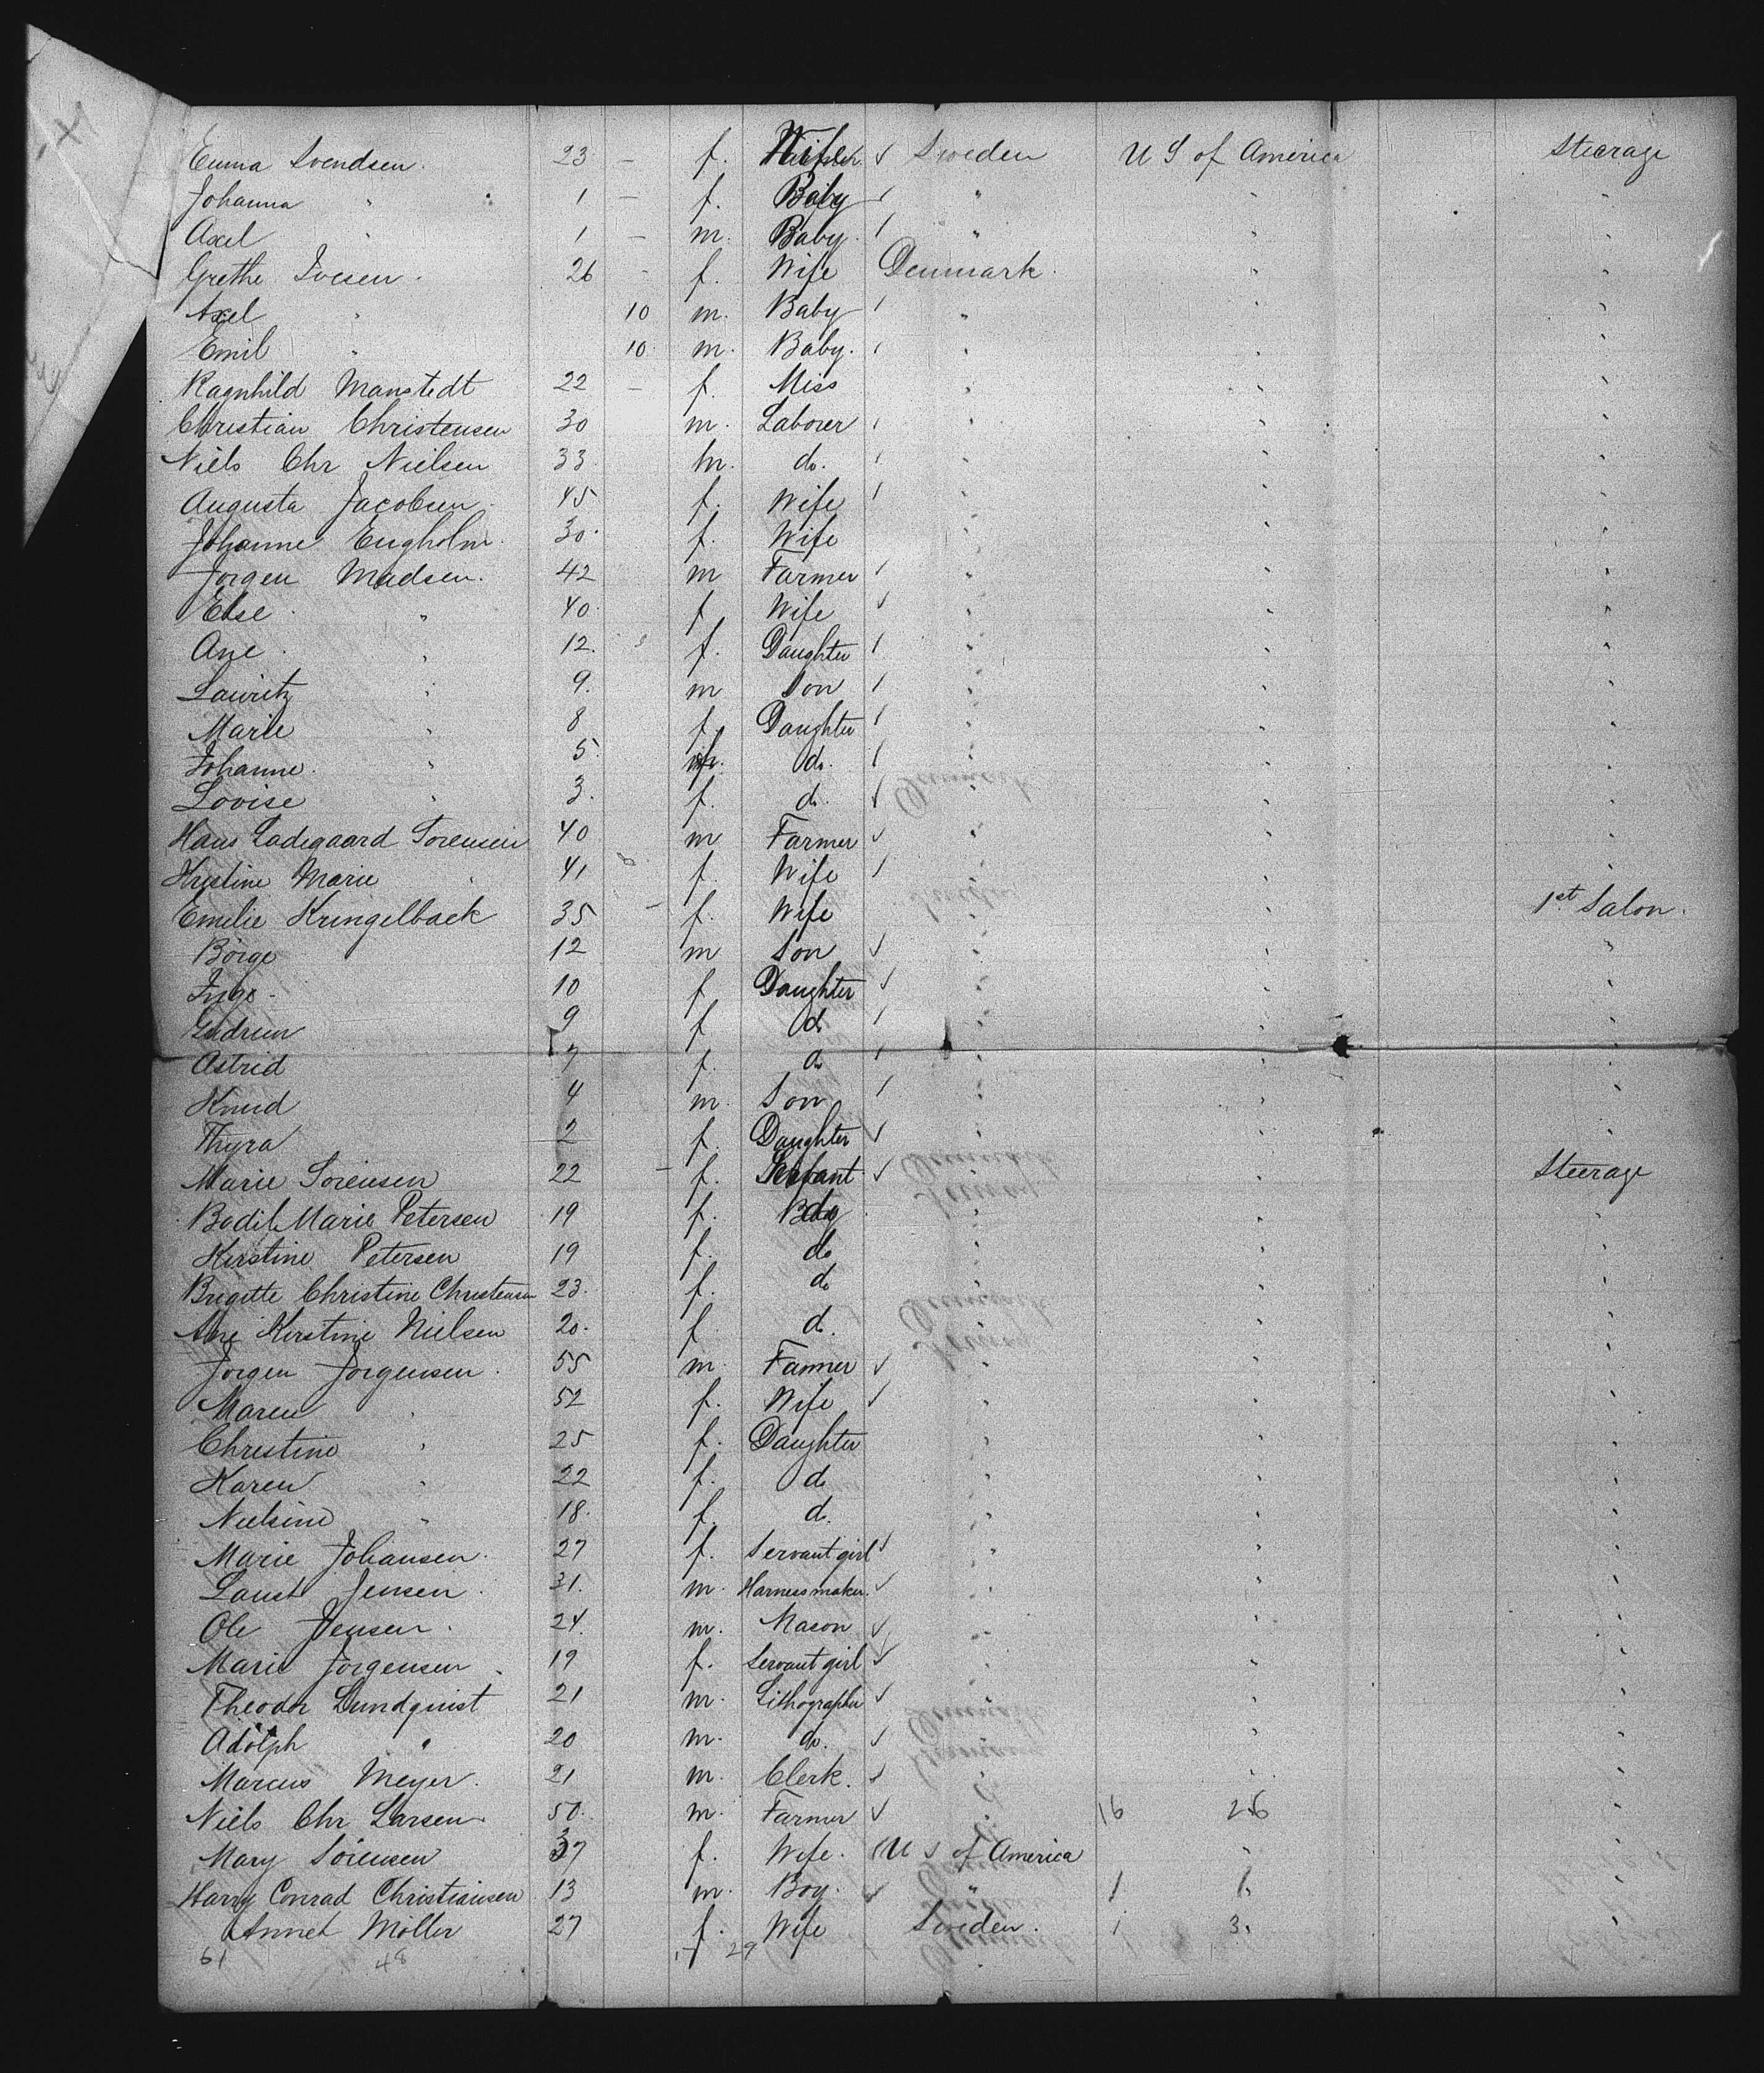 Emma Svendsen. 23 – f. Wife ✓ Sweden U S of America Steerage
Johanna " 1 – f. Baby " " "
Axel " 1 – m. Baby. " " "
Grethe Iversen. 26 - f. Wife Denmark. " "
Axel " 10 m. Baby " " "
Emil " 10 m. Baby. " " "
Ragnhild Manstedt 22 – f. Miss " " "
Christian Christensen 30 m. Laborer " " "
Niels Chr Nielsen 33 m. do. " " "
Augusta Jacobsen. 45 f. Wife " " "
Johanne Engholm. 30. f. Wife " " "
Jorgen Madsen. 42 m Farmer " " "
Else " 40. f Wife " " "
Ane " 12. f. Daughter " " "
Lauritz " 9. m Son " " "
Marie " 8 f. Daughter " " "
Johanne. " 5. f. do. " " "
Lovise " 3. f. do. " " "
Hans Ladegaard Sorensen 40 m Farmer ✓ " " "
Kristine Marie " 41 f. Wife " " "
Emilie Kringelback 35 – f. Wife " " 1st Salon.
Börge 12 m Son ✓ " " "
Inge - 10 f Daughter ✓ " " "
Gudrun 9 f do " " "
Astrid 7 f. do " " "
Knud 4 m. Son " " "
Thyra 2 f. Daughter ✓ " " "
Marie Sorensen 22 – f. Servant ✓ " " Steerage
Bodil Marie Petersen 19 f. do " " "
Kirstine Petersen 19 f. do " " "
Brigitte Christine Christensen 23. f. do " " "
Ane Kirstine Nielsen 20. f do. " " "
Jorgen Jorgensen. 55 m. Farmer ✓ " " "
Maren " 52 f. Wife ✓ " " "
Christine " 25 f. Daughter " " "
Karen " 22 f. do " " "
Nielsine " 18. f. do. " " "
Marie Johansen. 27 f. Servant girl ✓ " " "
Laust Jensen. 31. m. Harness maker. ✓ " " "
Ole Jensen. 24. m. Mason ✓ " " "
Marie Jorgensen 19 f. Servant girl ✓ " " "
Theodor Lundquist 21 m. Lithographer ✓ " " "
Adolph " 20 m. do. ✓ " " "
Marcus Meyer. 21 m. Clerk. ✓ " " "
Niels Chr Larsen 50. m. Farmer ✓ " 16 26 "
Mary Sörensen 37 f. Wife. U S of America " "
Harry Conrad Christiansen 13 m. Boy. ✓ " 1 1. "
Annet Möller 27 f. Wife Sweden. 1 3. "
61 48 17 29